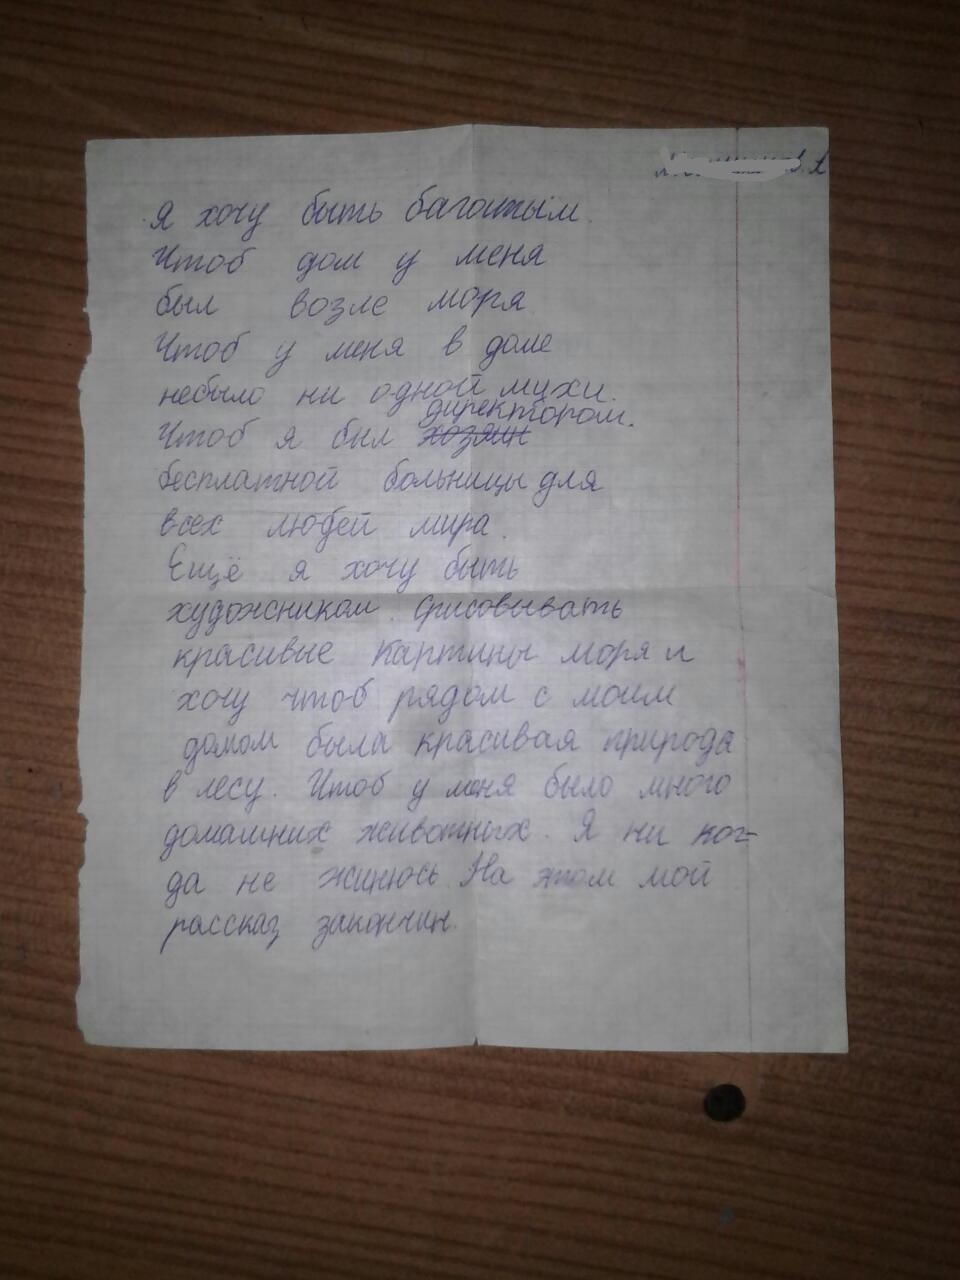 Я хочу быть багатым.
Чтоб дом у меня
был возле моря
Чтоб у меня в доме
небыло ни одной мухи.
директором.
Чтоб я был хозяин
бесплатной больницы для
всех людей мира.
Ещё я хочу быть
художником. срисовывать
красивые картины моря и
хочу чтоб рядом с моим
домом была красивая природа
в лесу. Чтоб у меня было много
домашних животных. Я ни ког-
да не жинюсь. На этом мой
рассказ закончин.